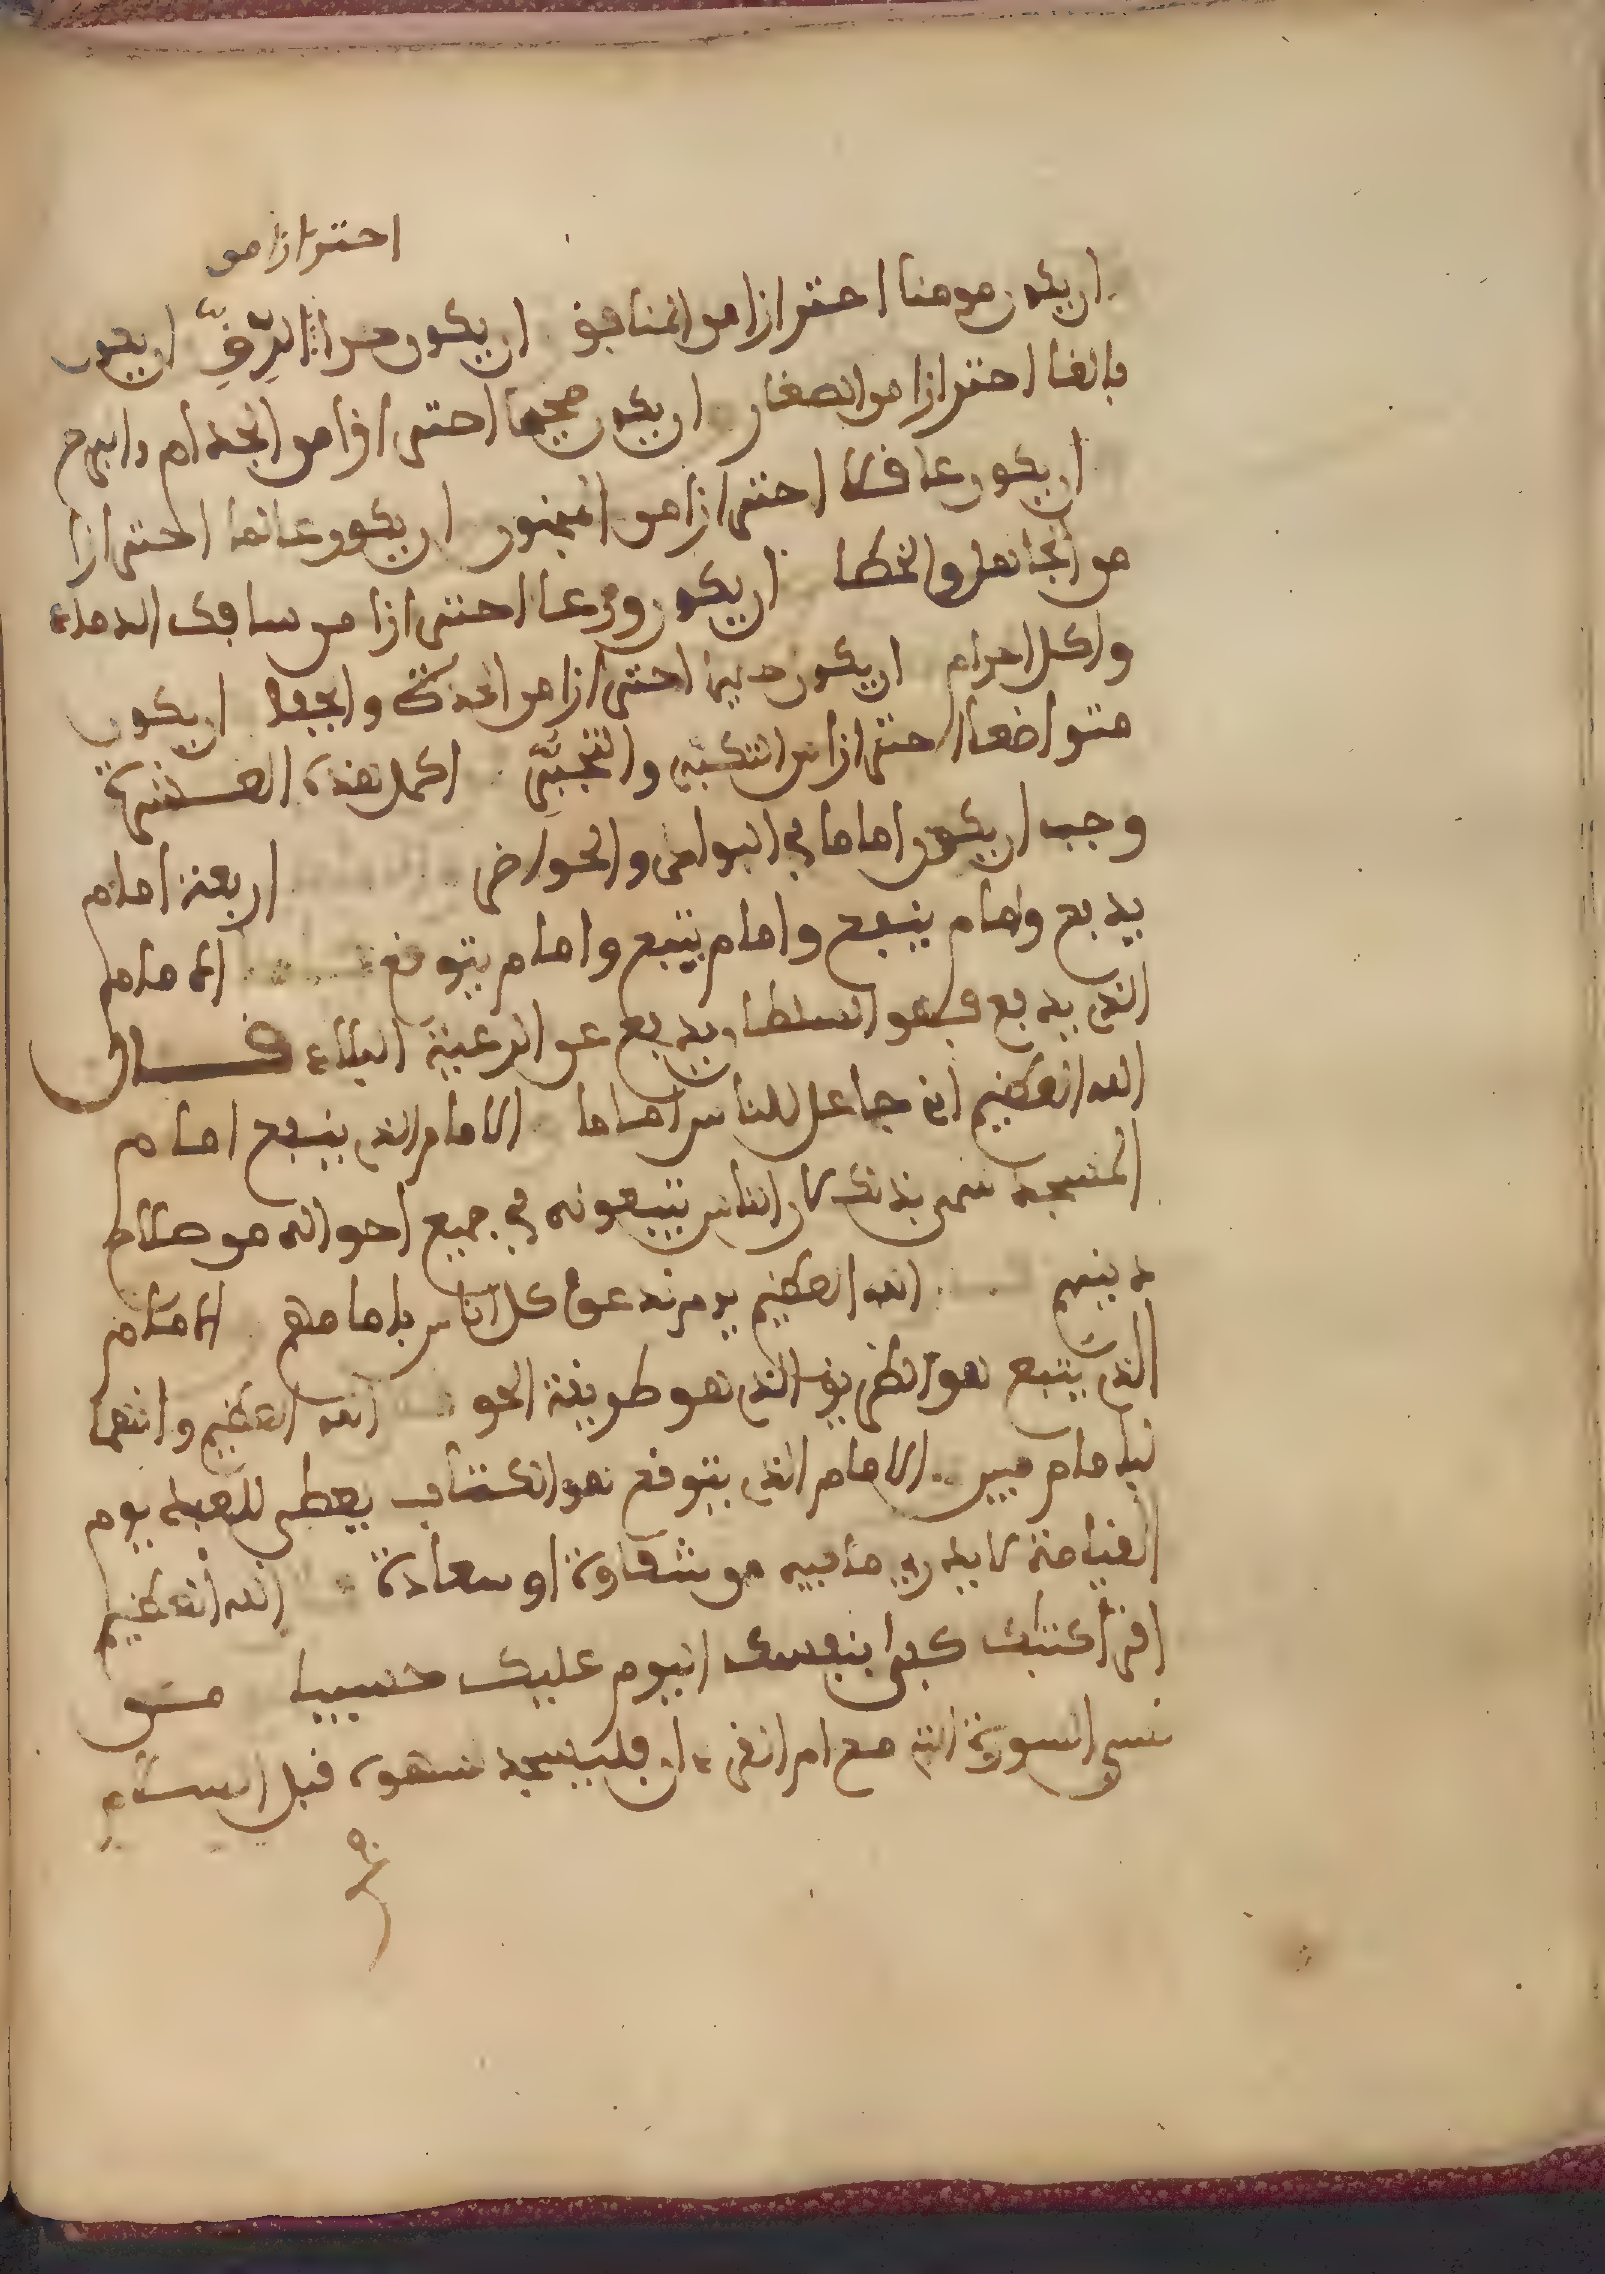 احترازا من
ان يكون مومنا احترازا من المنافق ان يكون حرا الرِّقِّ ان يكون
بالغا احترازا من الصغار ان يكون صحيحا احترازا من الجذام والبرص
ان يكون عاقلا احترازا من المجنون ان يكون عالما احترازا
من الجاهل والخطا ان يكون ورعا احترازا من سافك الدماء
واكل الحرام ان يكون حليما احترازا من الحدة والجفا ان يكون
متواضعا احترازا من التكبر والتجبّر اكمل هذه العشرة
وجب ان يكون اماما في النوافل والفرائض اربعة امام
يدفع وامام ينفع وامام يتبع وامام يتوقع الامام
الذي يدفع فهو السلطان يدفع عن الرعية البلاء قال
الله العظيم اني جاعل للناس اماما الامام الذي ينفع امام
المسجد سمي بذلك لان الناس يتبعونه في جميع احواله من صلاح
دينهم الله العظيم يوم ندعوا كل اناس بامامهم الامام
الذي يتبع هو الطريق الذي هو طريقة الحق الله العظيم وانهما
لبامام مبين الامام الذي يتوقع هو الكتاب يعطى للعبد يوم
القيامة لا يدري ما فيه من شقاوة او سعادة الله العظيم
اقرا كتابك كفى بنفسك اليوم عليك حسيبا من
نسي السورة التي مع ام القرءان فليسجد سهوه قبل السلام